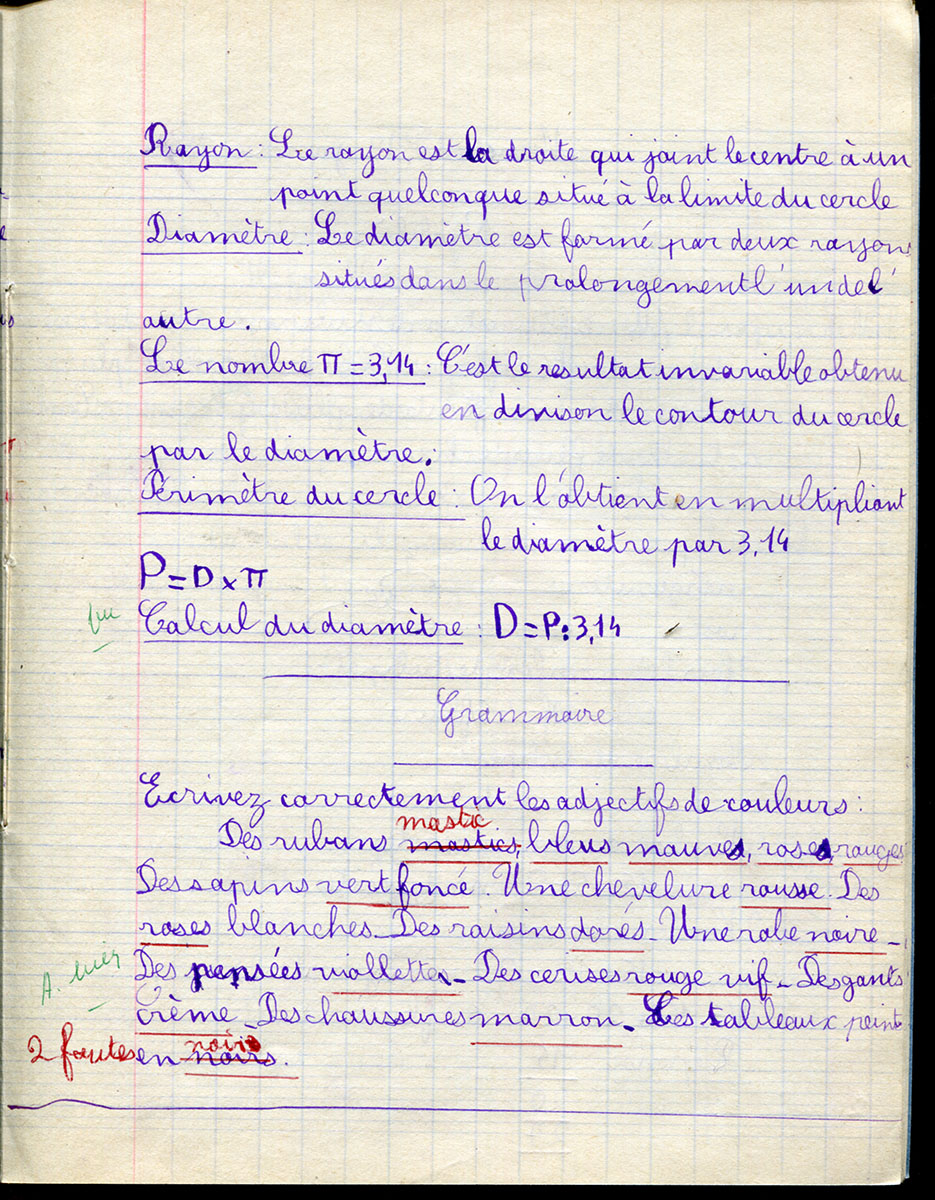 Rayon : Le rayon est la droite qui joint le centre à un
point quelconque situé à la limite du cercle
Diamètre : Le diamètre est formé par deux rayons
situés dans le prolongement l'un de l'
autre.
Le nombre π = 3,14 : C'est le resultat invariable obtenu
en divison le contour du cercle
par le diamètre.
Périmètre du cercle : On l'obtient en multipliant
le diamètre par 3,14
P = D x π
Vu Calcul du diamètre : D = P : 3,14
Grammaire
Ecrivez correctement les adjectifs de couleurs :
mastic
Des rubans mastics, bleus mauves, roses rouges
Des sapins vert foncé. Une chevelure rousse. Des
roses blanches - Des raisins dorés - Une robe noire -
Des pensées viollettes - Des cerises rouge vif - Des gants
crème - Des chaussures marron - Les tableaux peints
noir
2 fautes en noirs.